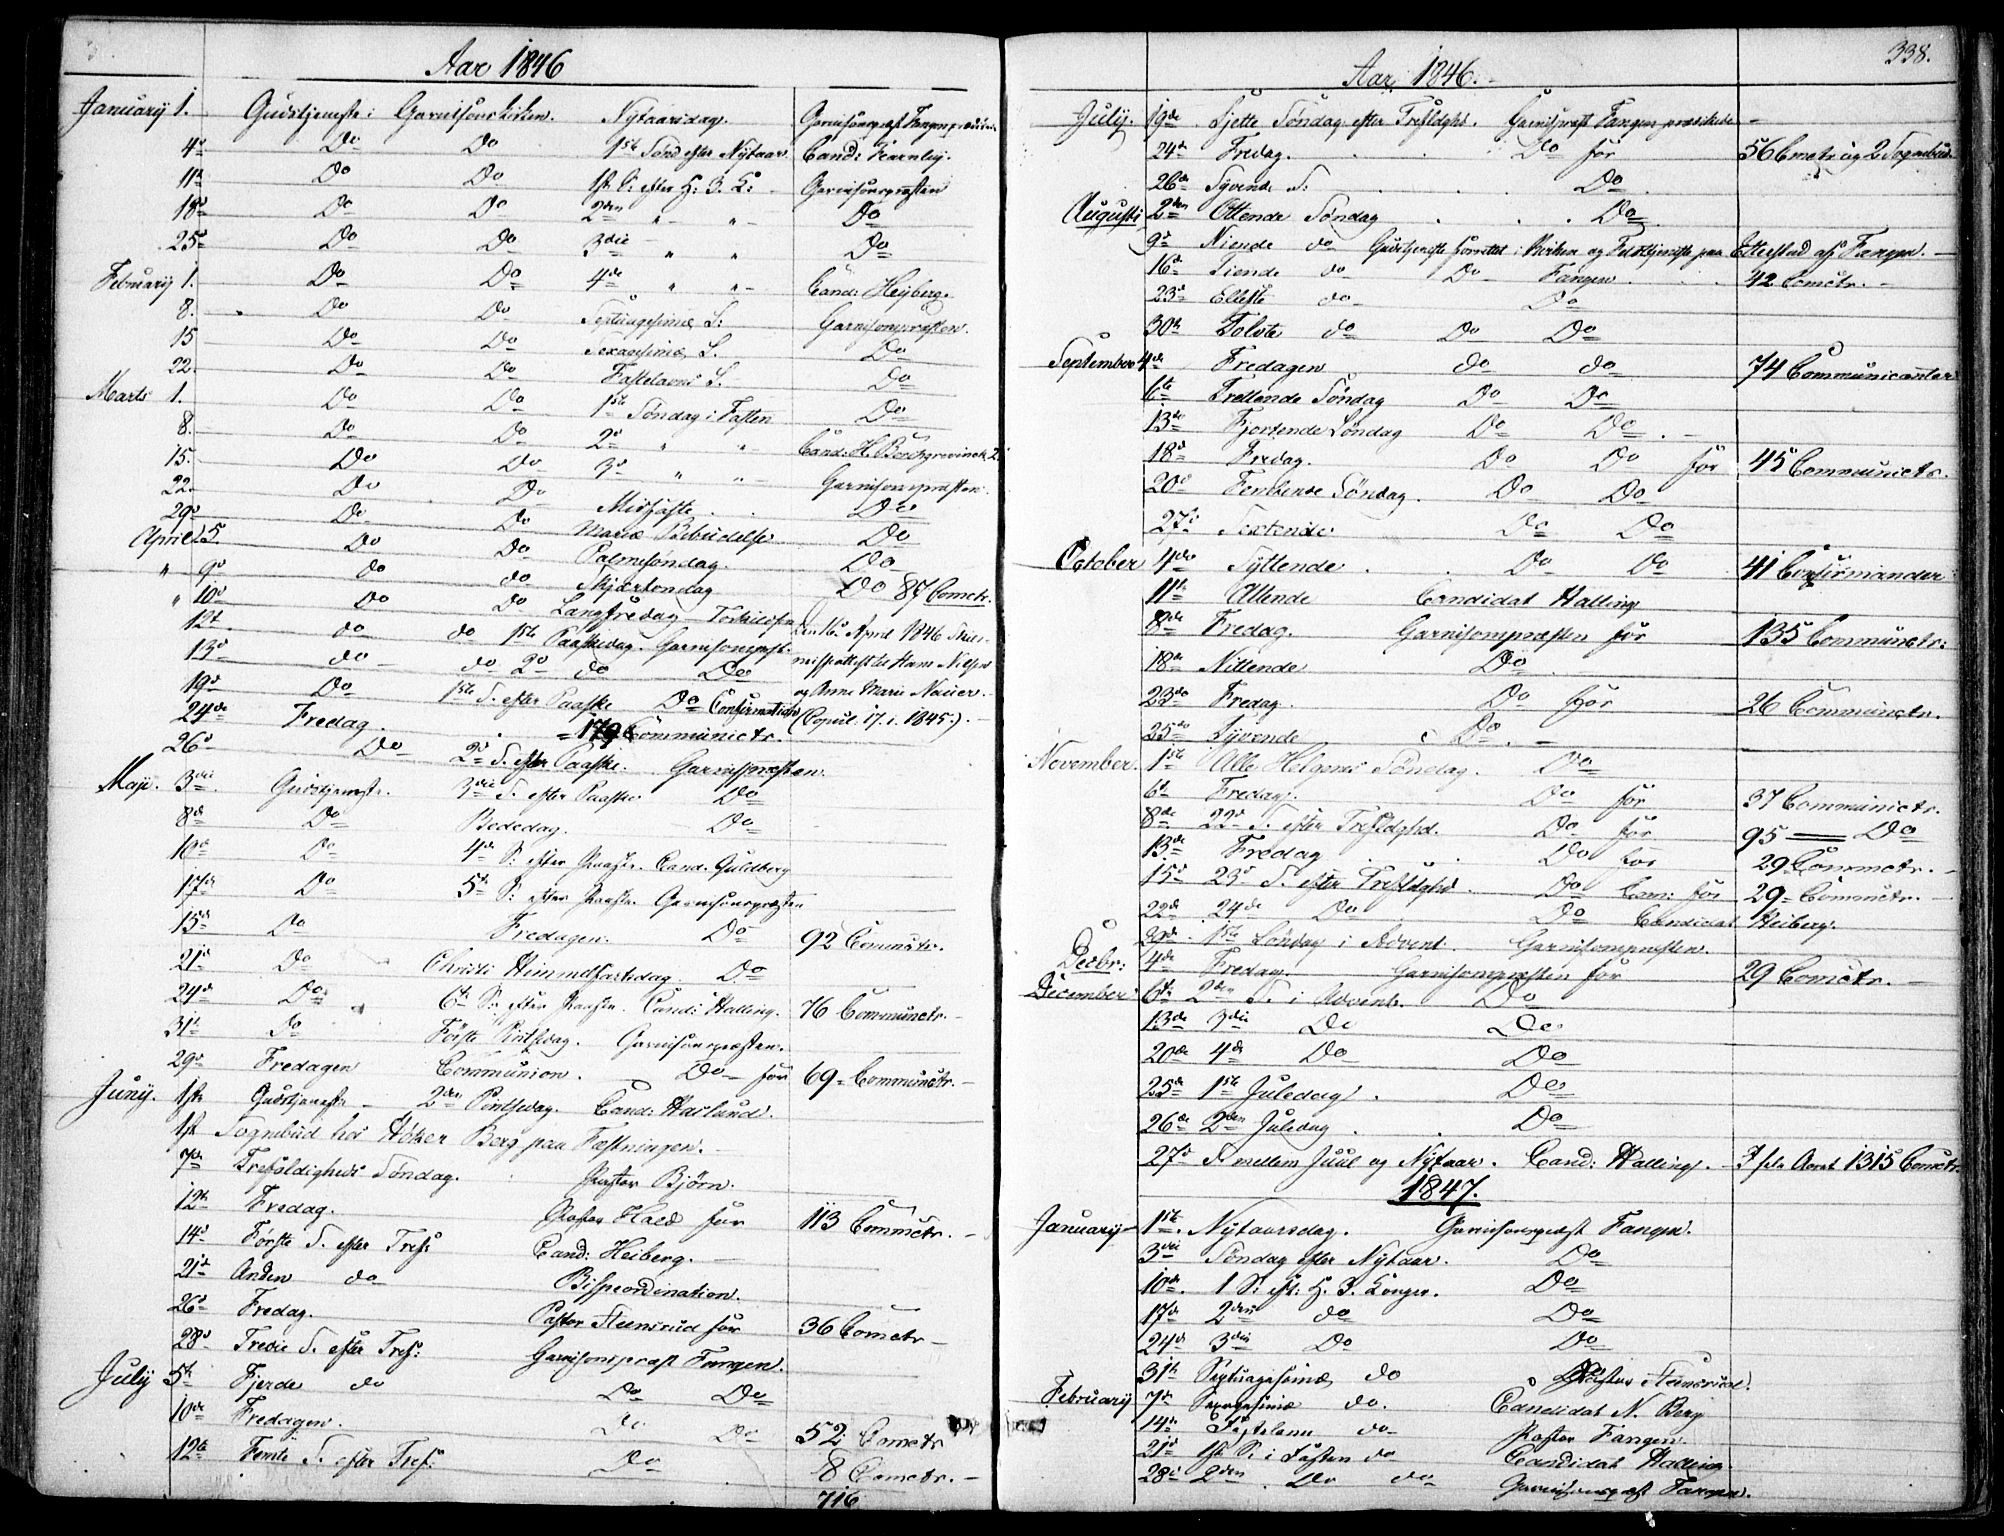 Aar 1846
January 1. Gudstjeneste i Garnisonskirken. Nytaarsdag.
4d Do Do 1ste Sønd efter Nytaar Cand:
11te Do Do 1ste S: efter H: 3. K: Garnisonspræsten
18d Do Do 2den " " Do
25d Do Do 3die " " Do
February 1. Do Do 4de " " Cand: Heyberg.
8. Do Do Septuagesimæ S: Garnisonspræsten.
15 Do Do Sexagesimæ S. Do
22. Do Do Fastelavns S. Do
Marts 1. Do Do 1ste Søndag i Fasten Do
8. Do Do 2d " " Cand: H.
15. Do Do 3d " " Garnisonspræsten.
22. Do Do Midfaste Do
29d Do Do Mariæ Bebudelse Do
April 5 Do Do Palmesøndag. Do
" 9d do do Skjærtorsdag Do 87 Comctr.
" 10d Do Do Langfredag
12t. do do 1ste Paaskedag. Garnisonspr. den 16. April 1846
13d do do 2d do Do Hans Nielsen
19d Do 1ste S. efter Paaske Do Confirmation og Anne Marie Nauer.
24de Fredag. 179 Communictr. (Copul. 17. 1. 1845.).
26d Do 2d S. efter Paaske. Garnispræsten.
Maji. 3die. Gudstjeneste. 3die S. efter Paaske Do
8de Do Bededag. Do
10de Do 4de S: efter Paaske. Cand. Guldberg
17de Do 5te S: efter Paaske Garnisonspræsten
15de Do Fredagen. Do 92 Communctr.
21d Do Christi Himmelfartsdag Do
24de Do 6te S: efter Paaske. Cand: Halling. 76 Communctr.
31te Do Første Pintsedag. Garnisonspræsten.
29d Fredagen Communion. Do for 69 Communctr.
Juny. 1ste Gudstjeneste 2den Pintsedag. Cand: Harlund.
1ste Sognebud hos Høker Berg paa Fæstningen.
7de Trefoldigheds Søndag. Pastor Bjørn.
12te Fredag. Pastor Hald for 113 Commctr.
14d Første S. efter Tref: Cand: Heiberg.
21d Anden do Bispeordination.
26d Fredag. Pastor Steensrud for 36 Comctr
28d Tredie S. efter Tref: Garnisonspræst Fangen.
July 5te Fjerde do Do Do
10de Fredagen. Do Do 52 Comctr
12te Femte S. efter Tref: Do 8 Comctr.
716
338.
Aar 1846.
July. 19de Sjette Søndag efter Trefoldghd. Garnispræst Fangen prædikede
24de Fredag. Do for 56 Cmctr og 2 Sognebud
26de Syvende S: Do
Augusti 2den Ottende Søndag Do
9d Niende do Gudstjeneste forrettet i Kirken og Felttjeneste paa Etterstad af Fangen.
16d Tiende do Do Fangen. 42 Comctr.
23d Ellefte do Do
30te Tolvte do Do Do
September 4de Fredagen do do 74 Communicanter
6te Trettende Søndag Do Do
13de Fjortende Søndag Do Do
18d Fredag. Do Do for 45 Communictr.
20de Femtende Søndag. Do Do
27d Sextende Do Do
October 4de Syttende Do Do 41 Confirmander
11te Attende Candidat Halling
8de Fredag. Garnisonspræsten for 135 Communctr:
18de Nittende Do
23de Fredag. Do for 26 Communctr.
25de Tyvende Do
November. 1ste Alle Helgens Søndag. Do
6te Fredag. Do for 37 Communictr.
8de 22d S. efter Trefoldghd. Do for 95 — Do
13de Fredag Do for 29 Commctr.
15d 23d S. efter Trefoldghd Do Com: for 29 Comnctr.
22de 24de Do Do Candidat Heiberg.
29de 1ste Søndag i Advent. Garnisonspræsten.
Decbr: 4de Fredag. Garnisonspræsten for 29 Comctr.
December 6te 2den S. i Advent. Do
13de 3die Do Do
20de 4de Do Do
25de 1ste Juledag Do
26de 2den Juledag Do
27d S. mellem Juul og Nytaar. Cand: Halling. I hele Aaret 1315 Comctr.
1847.
January 1ste. Nytaarsdag. Garnisonspræst Fangen.
3die Søndag efter Nytaar. Do
10de. 1 S: eft: H. 3. Konger. Do
17de 2den do Do
24de 3die Do Do
31te Septuagesimæ do Pastor Steensrud.
February 7de Sexagesimæ do. Candidat N. Berg
14de Fastelavn do Pastor Fangen
21d 1ste S: i Fasten do Candidat Halling.
28d 2den Do do Garnisonspræst Fangen.